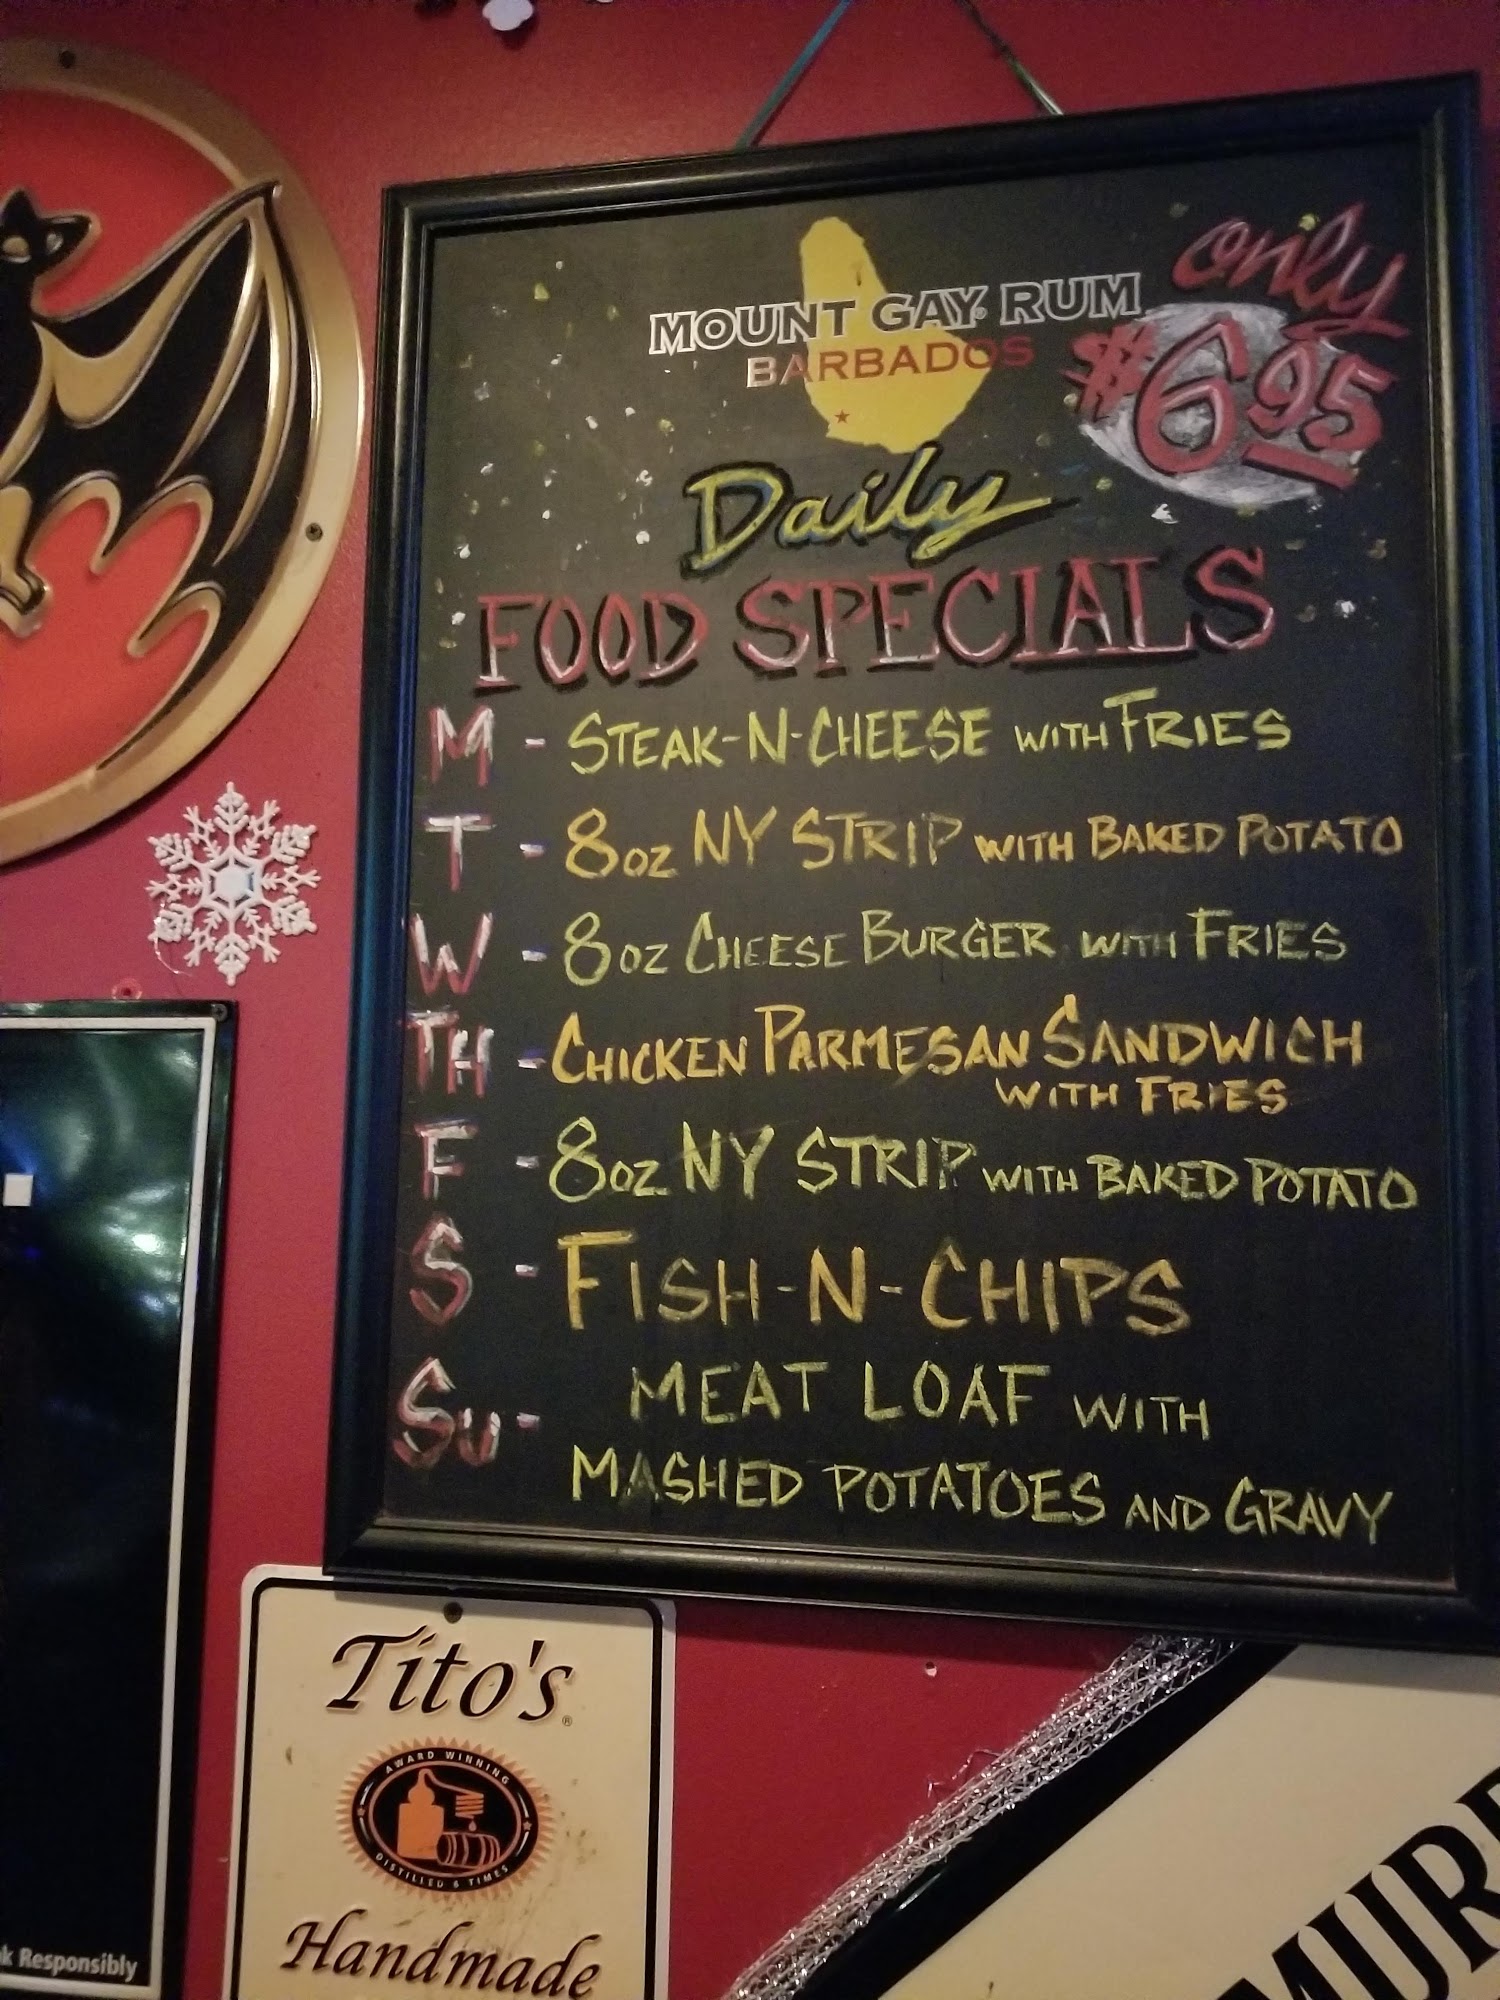 MOUNT GAY® RUM
BARBADOS
only
$6.95
Daily
FOOD SPECIALS
M - STEAK-N-CHEESE WITH FRIES
T - 8OZ NY STRIP WITH BAKED POTATO
W - 8OZ CHEESE BURGER WITH FRIES
TH - CHICKEN PARMESAN SANDWICH
WITH FRIES
F - 8OZ NY STRIP WITH BAKED POTATO
S - FISH-N-CHIPS
SU - MEAT LOAF WITH
MASHED POTATOES AND GRAVY
Tito's®
AWARD WINNING
DISTILLED 6 TIMES
Handmade
Responsibly